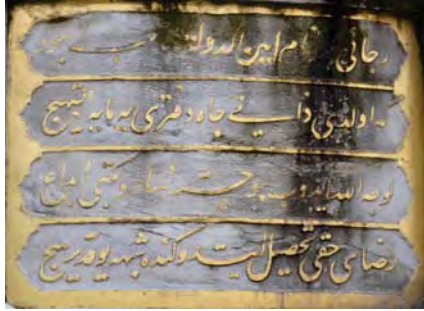 رجائی نام امین الدوله
اولدی ذاتی جاه دفتری یه مایه تبهیج
لوجه الله ایدوب بو چشمه و مکتبی ابداع
رضای حقی تحصیل ایتدوکنده شبهه یوقدر هیچ